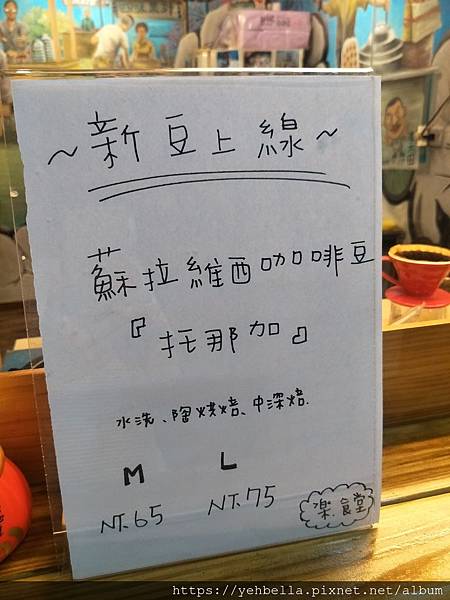 ~新豆上線~
蘇拉維西咖啡豆
『托那加』
水洗、陶烘焙、中深焙.
M L
NT.65 NT.75
楽食堂
https://yehbella.pixnet.net/album